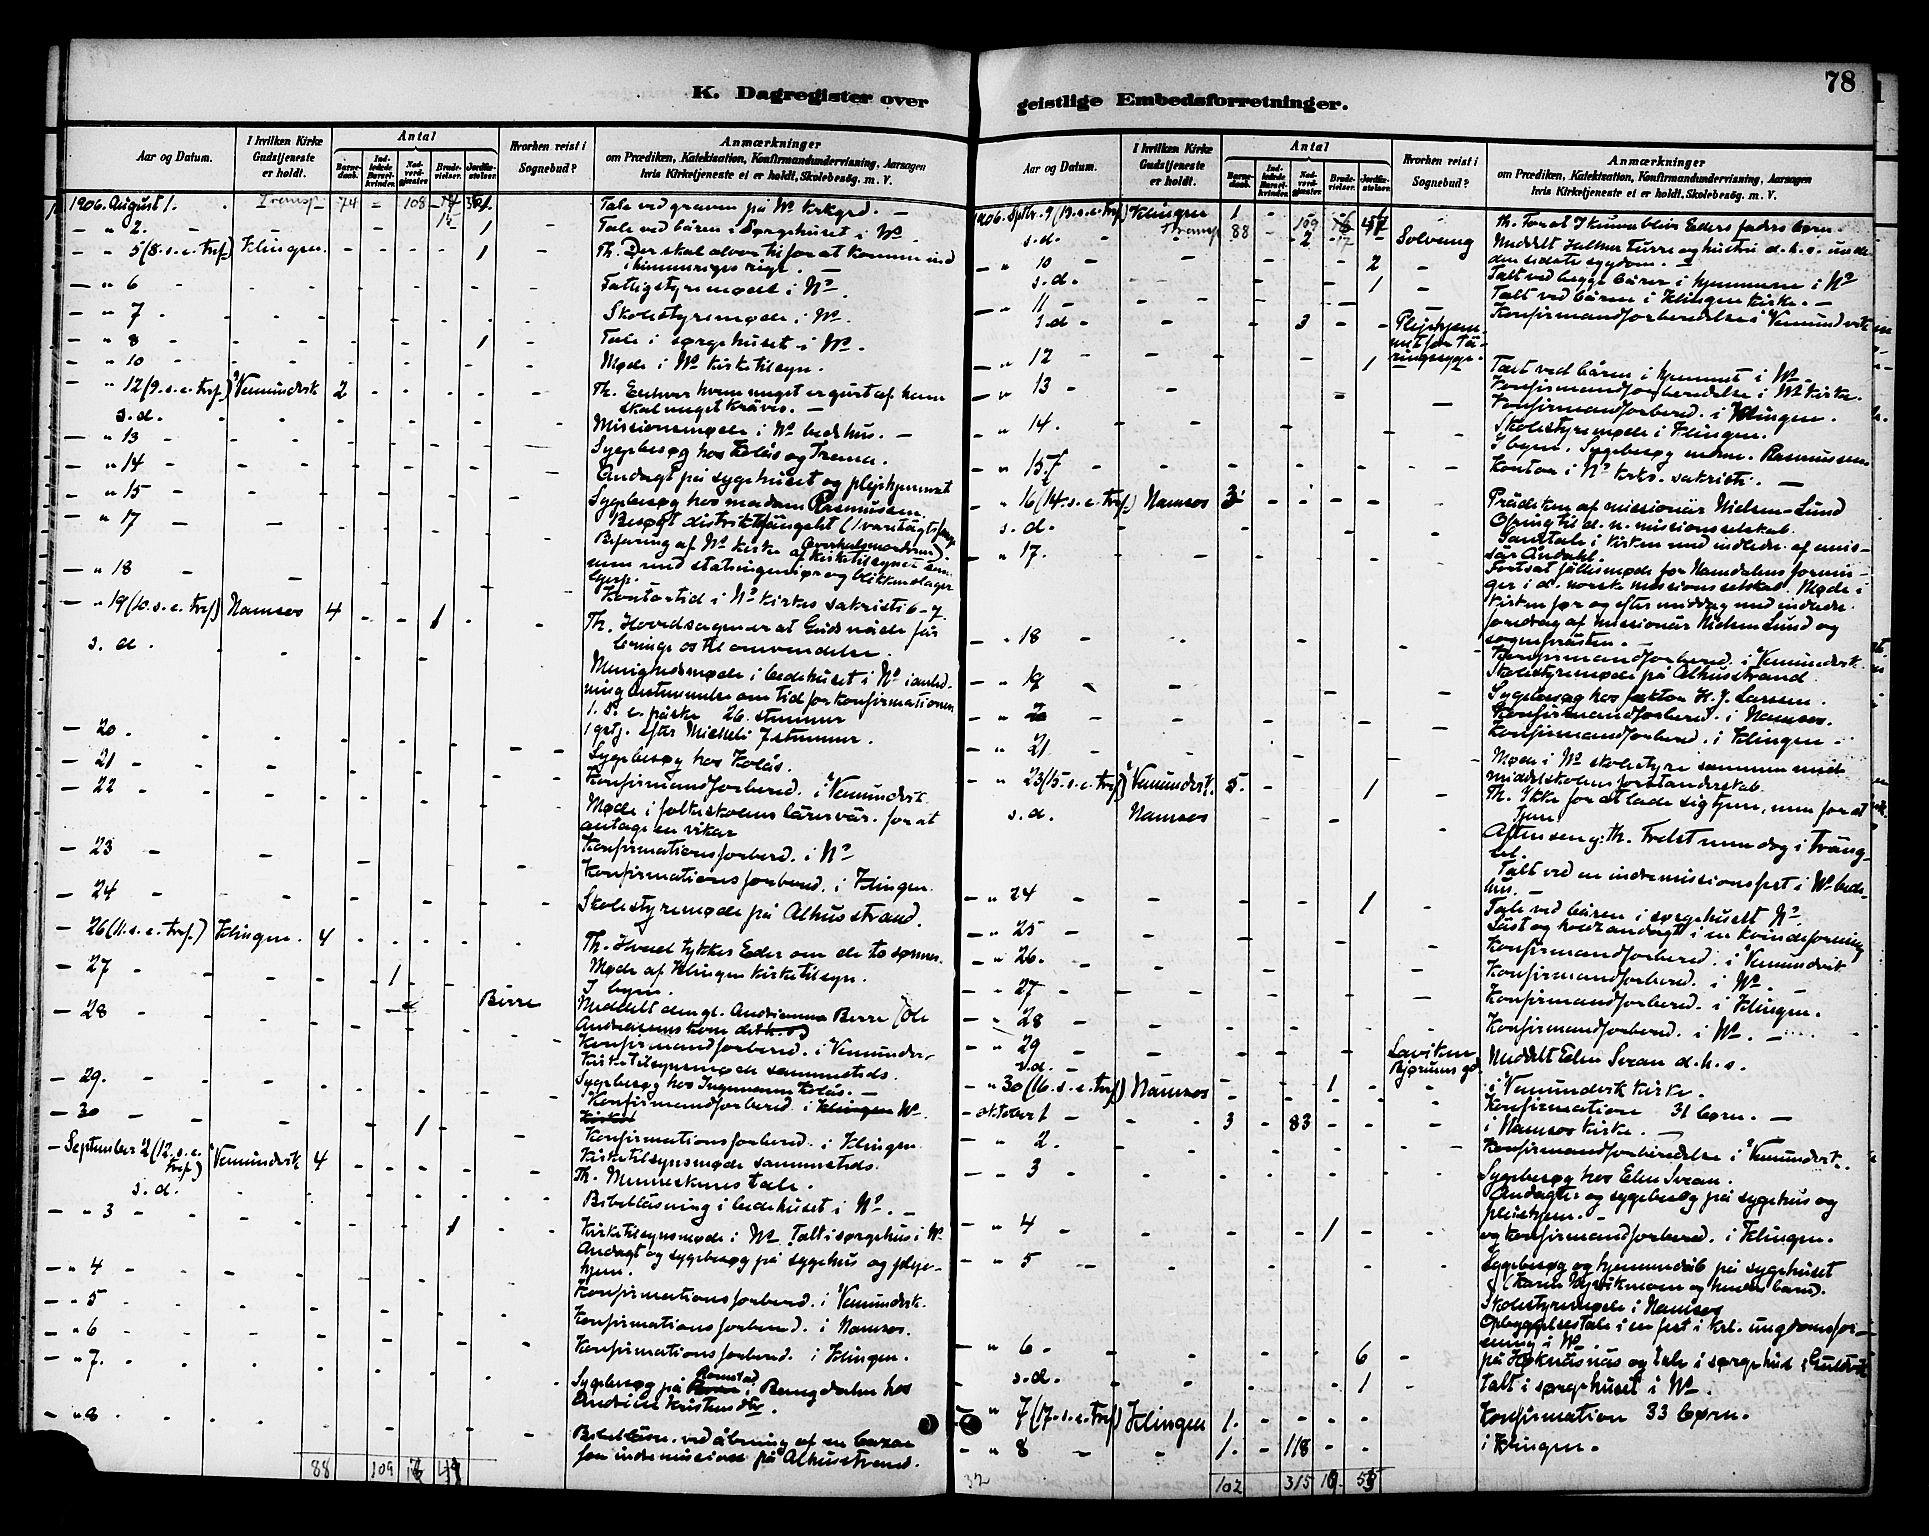 78
K. Dagregister over
geistlige Embedsforretninger.
Aar og Datum.
I hvilken Kirke Gudstjeneste er holdt.
Antal
Barnedaab.
Indledede Barselkvinder.
Nadverdgjester.
Brudevielser.
Jordfæstelser.
Hvorhen reist i Sognebud?
Anmærkninger
om Prædiken, Katekisation, Konfirmandundervisning, Aarsagen
hvis Kirketjeneste ei er holdt, Skolebesøg, m. V.
1906. August 1. Transp 74 - 108 Tale ved graven på Ns kirkegrd. -
" 2. 1 Tale ved båren i sørgehuset i Ns
" 5 (8. s. e. tref.) Klingen. 1 Th. Der skal alvor til for at komme ind
i himmeriges rige.
" 6 Fattigstyremøde i Ns
" 7 Skolestyremøde i Ns.
" 8 1 Tale i sørgehuset i Ns.
" 10 Møde i Ns kirketilsyn.
" 12 (9. s. e. tref.) Vemundvik 2 Th. Enhver hvem meget er givet af ham
skal meget kræves. -
s. d. Missionsmøde i Ns bedehus. -
" 13 Sygebesøg hos Kolås og
" 14 Andagt på sygehuset og plejehjemmet
" 15 Sygebesøg hos madam Rasmussen.
" 17 Besøgt distriktsfængslet
Befaring af Ns kirke af kirketilsynet
men med statsingeniør og blikkenslager
" 18 Kontortid i Ns kirkes sakristi 6-7
" 19 (10. s. e. tref.) Namsos 4 1 Th. Hovedsagen er at Guds nåde får
bringe os til omvendelse.
s. d. Menighedsmøde i bedehuset i Ns i anledning
afstemmelse om tid for konfirmationen
1. s. e. påske 26. stemmer
1 gstj. efter Mikkeli 7 stemmer.
20. Sygebesøg hos Kolås.
21 Konfirmandforbered. i Vemundvik.
22 Møde i folkeskolens lærervær. for at
antage en vikar
23 Konfirmationsforbered. i Ns
Konfirmationsforbered. i Klingen.
24 Skolestyremøde på Alhusstrand.
26 (11. s. e. tref.) Klingen. 4 Th. Hvad tykkes Eder om de to sønner.
27 1 Møde af Klingen kirketilsyn.
I byen.
28 Berre Meddelt den gl. Andrianna Berre (Ole
Andreasens kone det h. s)
Konfirmandforbered. i Vemundv.
Kirketilsynsmøde sammesteds.
29. Sygebesøg hos Ingemann Kolås. -
30 Konfirmandforbered. i Klingen Ns.
1 Konfirmationsforbered. i Klingen.
Kirketilsynsmøde sammesteds.
September 2 (12. s. e. tref.) Vemundvik 4 Th. Menneskenes tale.
s. d. Bibellæsning i bedehuset i Ns. -
" 3 1 Kirketilsynsmøde i Ns. Talt i sørgehus i Ns
Andagt og sygebesøg på sygehus og plejehjem.
" 4 Konfirmationsforbered. i Vemundvik.
" 5 Konfirmationsforbered. i Namsos.
" 6 Konfirmationsforbered. i Klingen.
" 7. Sygebesøg på Romstad i Bangdalen hos
Andrine Kristensdtr.
" 8 Bibellæsn. ved åbning af en bazar
for indremission på Alhusstrand.
88 109
Aar og Datum.
I hvilken Kirke Gudstjeneste er holdt.
Antal
Barnedaab.
Indledede Barselkvinder.
Nadverdgjester.
Brudevielser.
Jordfæstelser.
Hvorhen reist i Sognebud?
Anmærkninger
om Prædiken, Katekisation, Konfirmandundervisning, Aarsagen
hvis Kirketjeneste ei er holdt, Skolebesøg, m. V.
1906. Septbr. 9 (13. s. e. tref.) Klingen 1 Th. For at I kunne blive Eders faders børn.
Transp 88 109
s. d. 2 Solveng Meddelt
den sidste sygdom. -
" 10 2 Talt ved begge bårer i hjemmene i Ns
s. d. 1 Talt ved båren i Klingen kirke. -
" 11 Konfirmandforberedelse i Vemundvik
s. d 3 Plejehjemmet for tæringssyge.
" 12 1 Talt ved båren i hjemmet i Ns
" 13 Konfirmandforberedelse i Ns kirke.
Konfirmandforbered. i Klingen.
" 14. Skolestyremøde i Klingen.
I byen. Sygebesøg mdme. Rasmussen
" 15. Kontor i Ns kirkes sakristi. -
" 16 (14. s. e. tref.) Namsos 3 Prædiken af missionær Nielsen-Lund
Ofring til d. n. missionsselskab.
s. d. Samtale i kirken med indledn. af emissær
" 17. Fortsat fællesmøde for Namdalens foreninger
i d. norske missionsselskab. Møde i
kirken før og efter middag med indledn.
foredrag af missionær Nielsen Lund og
sogneprästen.
" 18 Konfirmandforbered. i Vemundvik.
Skolestyremøde på Alhusstrand.
" 19 Sygebesøg hos faktor H. J. Larsen.
Konfirmandforbered. i Namsos.
" 21 Konfirmandforbered. i Klingen. -
Møde i Ns skolestyre sammen med
middelskolens forstanderskab.
" 23 (15. s. e. tref.) Vemundvik. 5. 1 Th. Ikke for at lade sig tjene, men for at
tjene
s. d. Namsos Aftensang. Th. Frelst men dog i trængsel.
Talt ved en indremissionsfest i Ns bedehus. -
" 24 1 Tale ved båren i sørgehuset Ns
" 25 Läst og holdt andagt i en kvindeforening
" 26. Konfirmandforbered. i Vemundvik
Konfirmandforbered. i Ns. -
" 27 Konfirmandforbered. i Klingen.
" 28 Konfirmandforbered. i Ns. -
" 29 Laviken Meddelt Elen Seran d. h. s.
s. d. Bjørums gd
" 30 (16. s. e. tref.) Namsos 1 i Vemundvik kirke.
Konfirmation 31 børn. -
oktober 1 3 83 i Namsos kirke. -
" 2. Konfirmandforberedelse i Vemundvik.
" 3 Sygebesøg hos Elen Seran.
Andagter og sygebesøg på sygehus og
plejehjem. -
" 4 1 og konfirmandforbered. i Klingen.
" 5 Sygebesøg og hjemmedåb på sygehuset
Skolestyremøde i Namsos
Opbyggelsestale i en fest i krl. ungdomsforening
i Ns.
" 6. 6 på Høknäsnäs og tale i sørgehus i
s. d. 1 Talt i sørgehuset i Ns.
" 7 (17. s. e. tref.) Klingen 1. Konfirmation 33 børn.
" 8 1. 118 i Klingen.
32 102 315